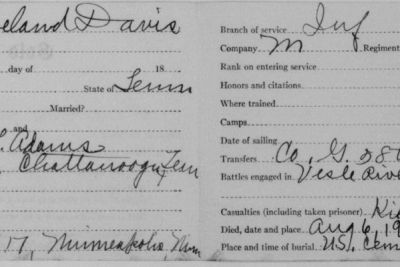 eland Davis
day of 18
State of Tenn
Married?
and
Adams
Chattanooga, Ten
17, Minneapolis, Minn
Branch of service Inf
Company M Regiment
Rank on entering service
Honors and citations
Where trained
Camps
Date of sailing
Transfers Co. G. 38
Battles engaged in Vesle Rive
Casualties (including taken prisoner) Ki
Died, date and place Aug 6, 19
Place and time of burial U.S. Cem